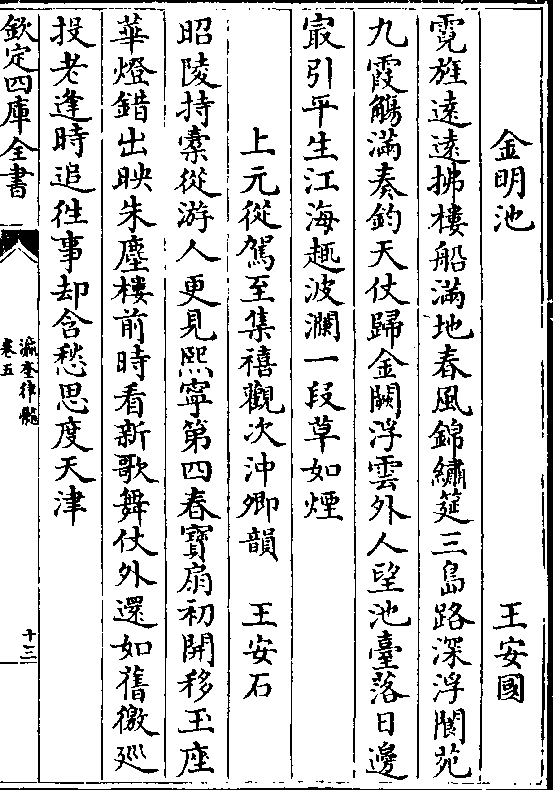 金明池　王安國
霓旌遠遠拂樓船滿地春風錦繡筵三島路深浮閬苑
九霞觴滿奏鈞天仗歸金闕浮雲外人望池臺落日邊
㝡引平生江海趣波瀾一段草如煙
上元從駕至集禧觀次沖卿韻　王安石
昭陵持橐從游人更見熙寧第四春寶扇初開移玉座
華燈錯出映朱塵樓前時看新歌舞仗外還如舊徼廵
投老逢時追徃事却含愁思度天津
欽定四庫全書
瀛奎律髓
卷五
十三